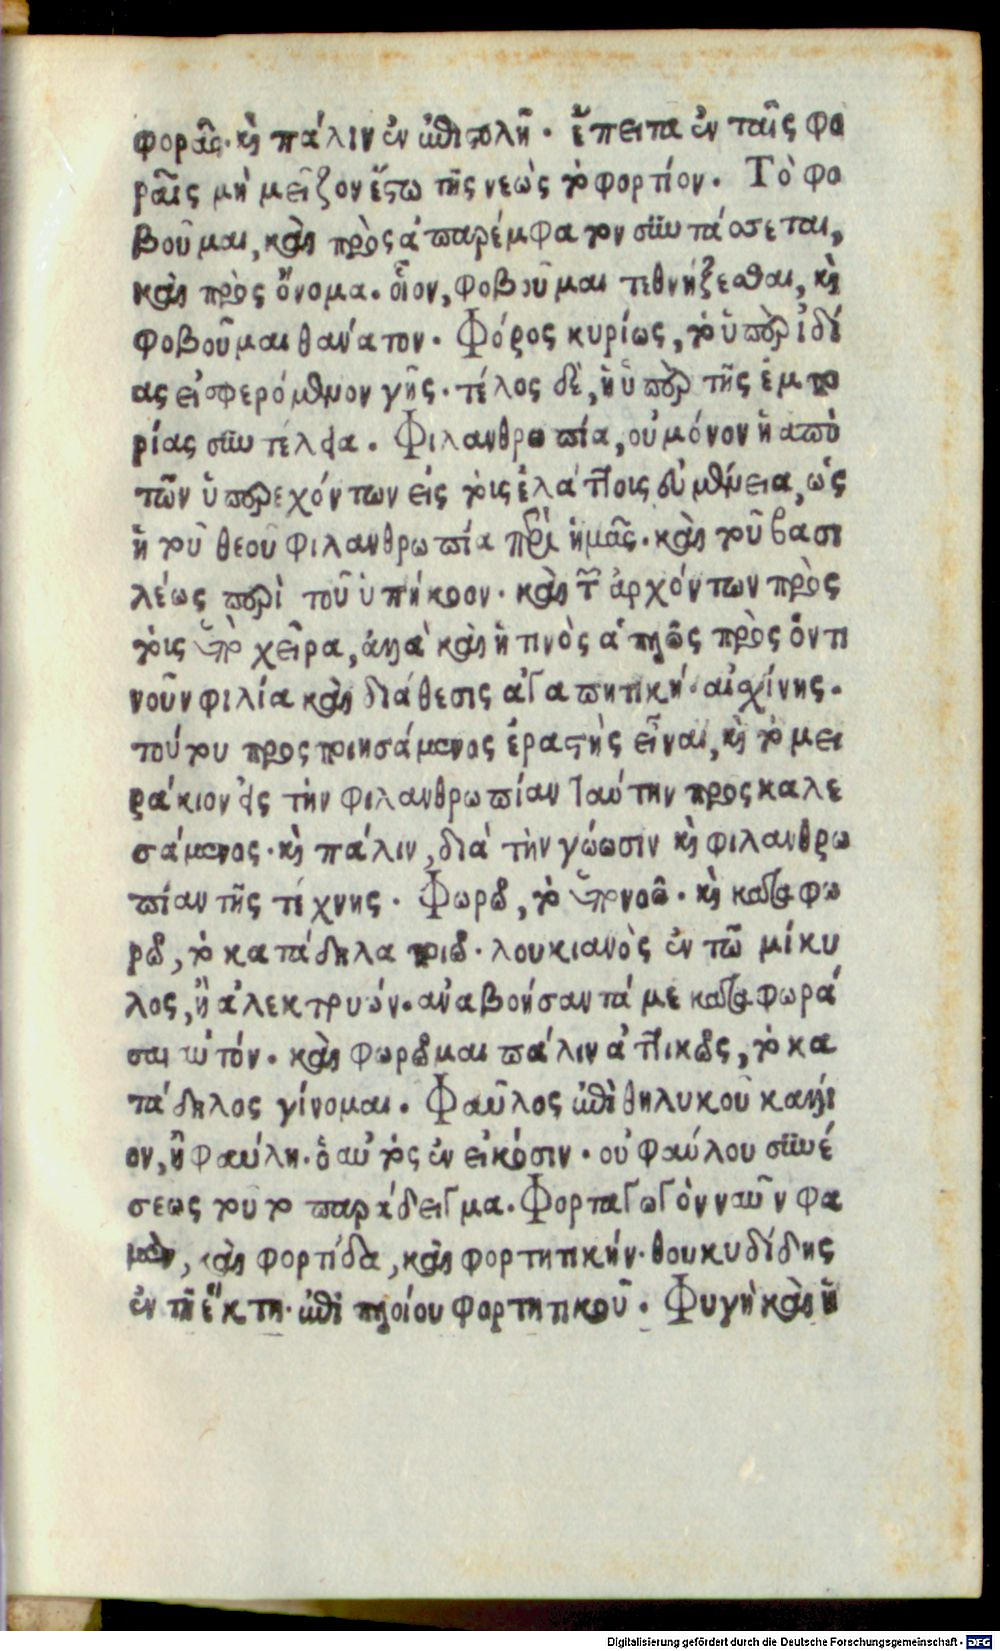 φορᾶς· κὴ πάλιν ἐν ἐπιστολῇ· ἔπειτα ἐν ταῖς φο
ραῖς μὴ μεῖζον ἔστω τῆς νεὼς τὸ φορτίον. Τὸ φο
βοῦμαι, καὶ πρὸς ἀπαρέμφατον συντάσσεται,
καὶ πρὸς ὄνομα. οἷον, φοβοῦμαι τεθνήξεσθαι, κὴ
φοβοῦμαι θανάτον. Φόρος κυρίως, τὸ ὑπὲρ ἰδί
ας εἰσφερόμενον γῆς. τέλος δὲ, ἡ ὑπὲρ τῆς ἐμπο
ρίας συντέλεια. Φιλανθρωπία, οὐ μόνον ἡ ἀπὸ
τῶν ὑπερεχόντων εἰς τοὺς ἐλάττοις εὐμένεια, ὡς
ἡ τοῦ θεοῦ φιλανθρωπία περὶ ἡμᾶς. καὶ τοῦ βασι
λέως περὶ τοῦ ὑπήκοον. καὶ τῶν ἀρχόντων πρὸς
τοὺς ὑπὸ χεῖρα, ἀλλὰ καὶ ἡ τινὸς ἁπλῶς πρὸς ὅντι
νοῦν φιλία καὶ διάθεσις ἀγαπητική. αἰσχίνης.
τούτου προσποιησάμενος ἐραστὴς εἶναι, κὴ τὸ μει
ράκιον εἰς τὴν φιλανθρωπίαν ταύτην προσκαλε
σάμενος. κὴ πάλιν, διὰ τὴν γνῶσιν κὴ φιλανθρω
πίαν τῆς τέχνης. Φωρῶ, τὸ ὑπονοῶ. κὴ καταφω
ρῶ, τὸ κατάδηλα ποιῶ. λουκιανὸς ἐν τῷ μίκυ
λος, ἢ ἀλεκτρυών. ἀναβοήσαντά με καταφωρά
σαι αὐτόν. καὶ φωρῶμαι πάλιν ἀττικῶς, τὸ κα
τάδηλος γίνομαι. Φαῦλος ἐπὶ θηλυκοῦ κάλλι
ον, ἢ φαύλη. ὁ αὐτὸς ἐν εἰκόσιν. οὐ φαύλου συνέ
σεως τοῦτο παράδειγμα. Φορταγωγὸν ναῦν φα
μὲν, καὶ φορτίδα, καὶ φορτητικήν. θουκυδίδης
ἐν τῇ ἕκτῃ. ἐπὶ πλοίου φορτητικοῦ. Φυγὴ καὶ ἡ
Digitalisierung gefördert durch die Deutsche Forschungsgemeinschaft · DFG